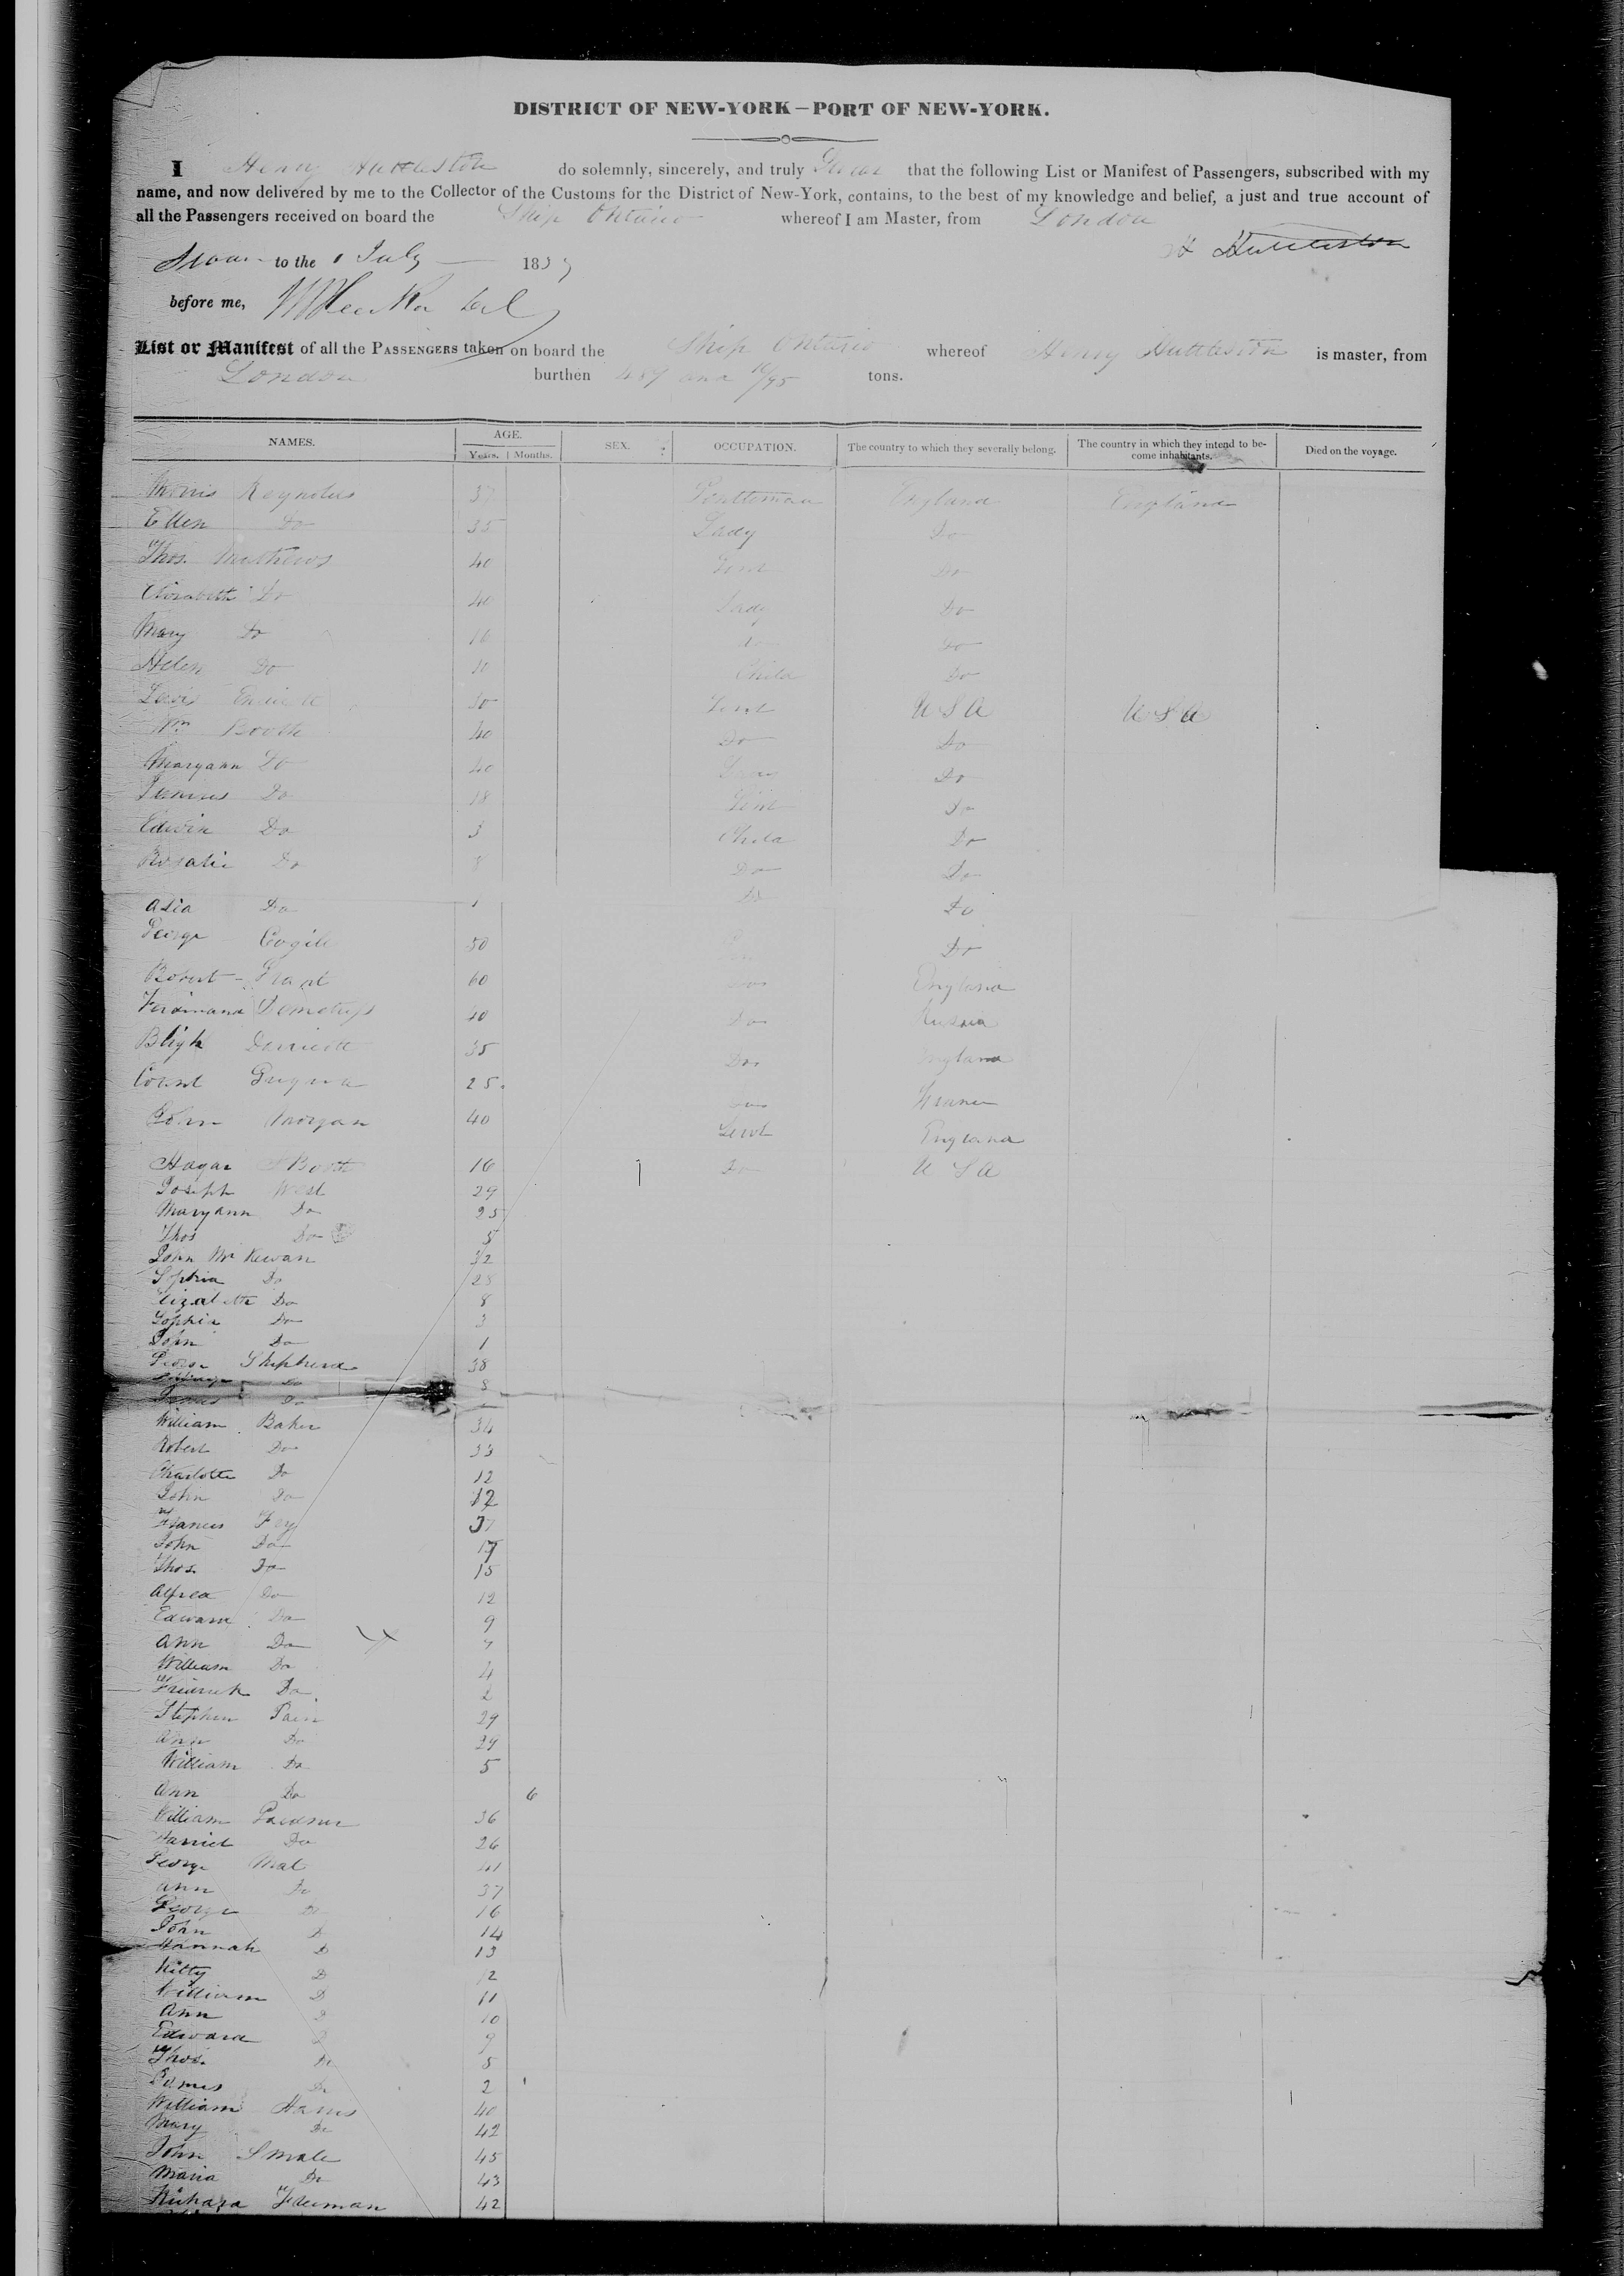 DISTRICT OF NEW-YORK—PORT OF NEW-YORK.
I Henry Huttleston do solemnly, sincerely, and truly Swear that the following List or Manifest of Passengers, subscribed with my
name, and now delivered by me to the Collector of the Customs for the District of New-York, contains, to the best of my knowledge and belief, a just and true account of
all the Passengers received on board the Ship Ontario whereof I am Master, from London
H Huttleston
Sworn to the 1 July 183
before me,
List or Manifest of all the PASSENGERS taken on board the Ship Ontario whereof Henry Huttleston is master, from
London burthen 489 and 10/95 tons.
NAMES. AGE. SEX. OCCUPATION. The country to which they severally belong. The country in which they intend to be-
come inhabitants. Died on the voyage.
Years. Months.
Reynolds 37 Gentleman England England
Ellen Do 35 Lady Do
Thos. Mathews 40 Gent Do
Elizabeth Do 40 Lady Do
Mary Do 16 do Do
Helen Do 10 Child Do
30 Gent U S A U S A
Wm Booth 40 Do Do
Maryann Do 40 Lady Do
James Do 18 Gent Do
Edwin Do 3 Child Do
Rosalie Do 8 Do Do
Do 1 Do Do
George 50 Do
Robert Grant 60 England
Ferdinand 40 Do Russia
Bligh 35 Do England
Count 25 France
John Morgan 40 Gent England
Hagar Booth 16 Do U S A
Joseph West 29
Maryann Do 25
Thos Do 5
John Mc Kewan 32
Sophia Do 28
Elizabeth Do 8
Sophia Do 3
John Do 1
George Shepherd 38
Do 8
James Do
William Baker 34
Robert Do 33
Charlotte Do 12
John Do 12
Frances Fry 37
John Do 17
Thos. Do 15
Alfred Do 12
Edward Do 9
Ann Do 7
William Do 4
Frederick Do 2
Stephen Pain 29
Ann Do 29
William Do 5
Ann Do 6
William Gardner 36
Harriet Do 26
George 41
Ann Do 37
George Do 16
John D 14
Hannah D 13
Kitty D 12
William D 11
Ann D 10
Edward D 9
Thos. Do 5
James Do 2
William Harris 40
Mary Do 42
John Smale 45
Maria Do 43
Richard Freeman 42